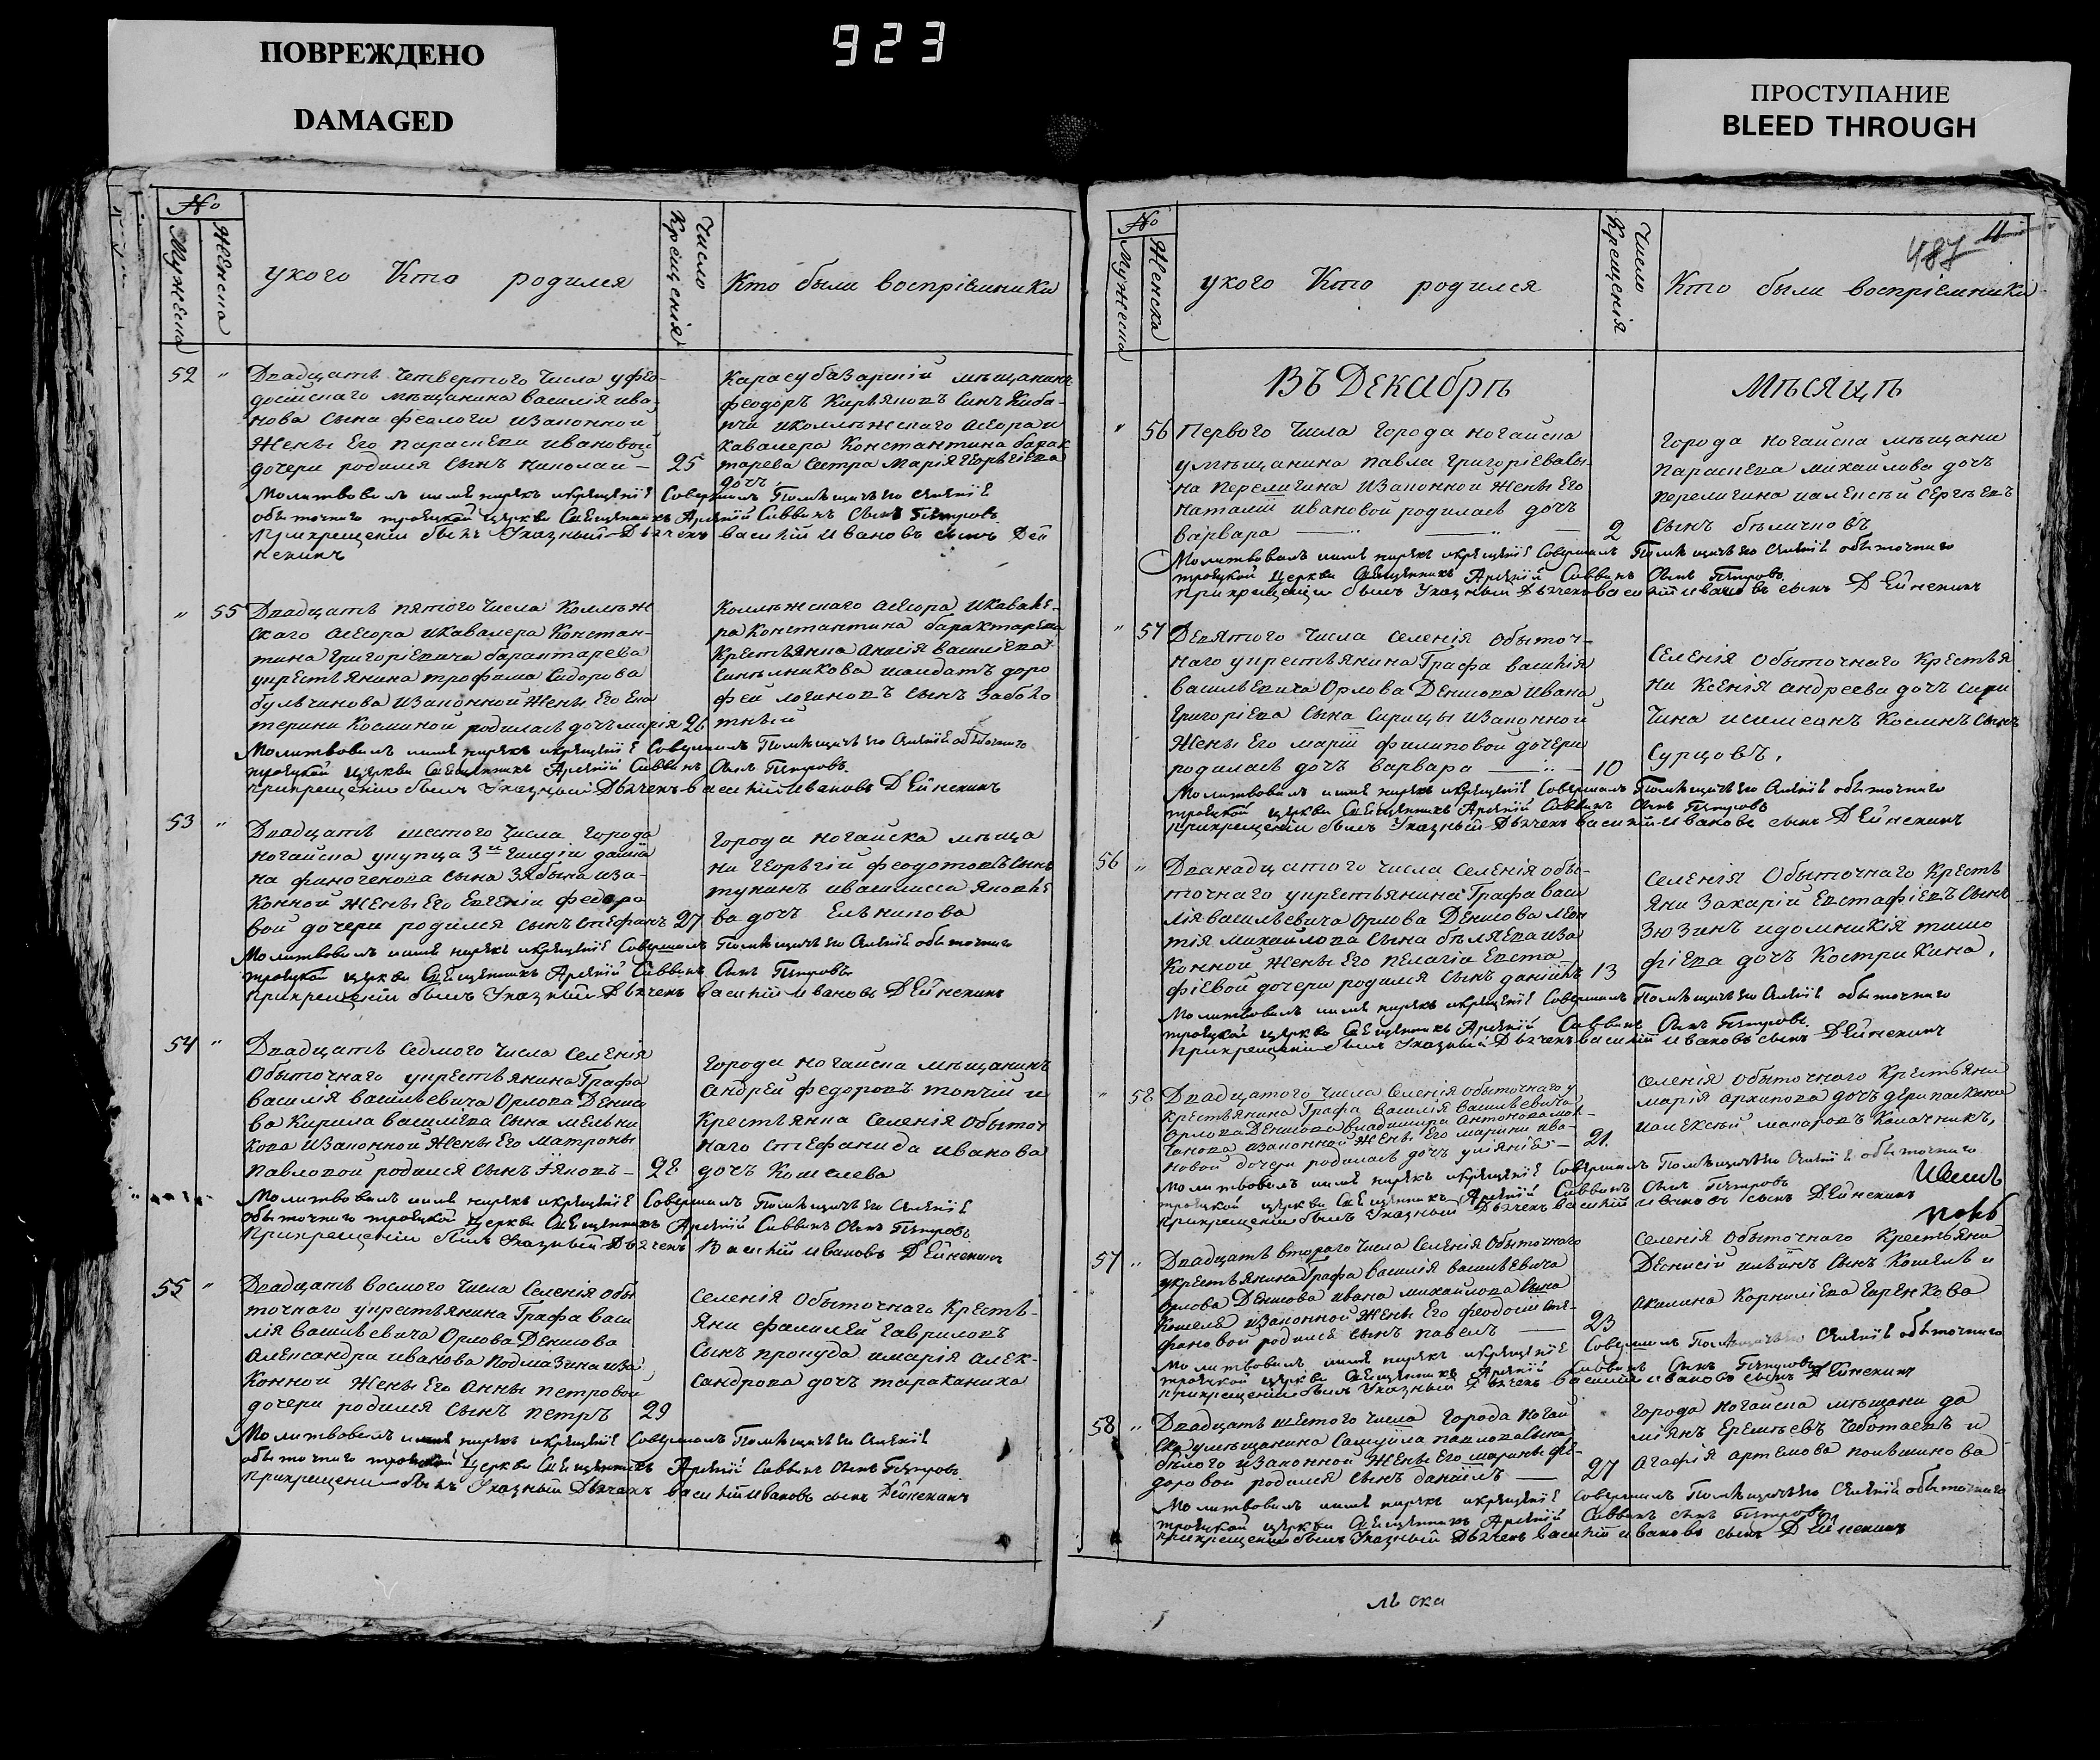 ПОВРЕЖДЕНО
DAMAGED
923
ПРОСТУПАНИЕ
BLEED THROUGH
№
Мужеска
Женска
укого Кто родился
Число Крещенія
Кто были воспріемники
52 "
Двадцать четвертого Числа уфео-
досійскаго мещанина василія ива-
нова сына изаконной
Жены Его параскеви ивановой
дочери родился сынъ николай — 25
Карасубазарскій мещанинъ
феодоръ сынъ
иколлежскаго асесора и
кавалера Константина барак
тарева сестра Марія георгіева
дочь
Молитвовалъ имя нарекъ икрещеніе Совершалъ Помещичьего Селенія
обыточного троецкой церкви Священникъ Арсеній Саввинъ Сынъ Петровъ
Прикрещеніи былъ Указный Дьячекъ василій Ивановъ сынъ Дей
некинъ
" 55
Двадцать пятого Числа Коллеж
скаго асесора икавалера Констан-
тина Григоріевича барактарева
укрестьянина трофима Сидорова
бульчинова изаконной Жены Его Ека
терины Косминой родилась дочь марія 26
Коллежскаго асесора икавале-
ра Константина барактарева
Крестьянка васильева
Синельникова исолдатъ доро
фей логиновъ сынъ заболо
тній
Молитвовалъ имя нарекъ икрещеніе Совершалъ Помещичьего Селенія обыточного
троецкой церкви Священникъ Арсеній Саввинъ Сынъ Петровъ
Прикрещеніи былъ Указный Дьячекъ василій Ивановъ Дейнекинъ
53 "
Двадцать шестого Числа города
ногайска укупца 3й Гилдіи
на финогенова сына Зябкина иза-
конной Жены Его Евгеніи федоро
вой дочери родился сынъ Стефанъ 27
Города ногайска меща
не георгій федотовъ сынъ
тукинъ ивасилисса яковле
ва дочь Ельникова
Молитвовалъ имя нарекъ икрещеніе Совершалъ Помещичьего Селенія обыточного
троецкой церкви Священникъ Арсеній Саввинъ Сынъ Петровъ
Прикрещеніи былъ Указный Дьячекъ василій Ивановъ Дейнекинъ
54 "
Двадцать седмого Числа Селенія
Обыточнаго укрестьянина Графа
василія васильевича Орлова Денисо
ва Кирила василіева сына мельни
кова изаконной Жены Его матроны
павловой родился сынъ яковъ — 28
Города ногайска мещанинъ
андрей федоровъ топчій и
Крестьянка Селенія обыточ
наго стефанида иванова
дочь Кошелева
Молитвовалъ имя нарекъ икрещеніе Совершалъ Помещичьего Селенія
обыточного троецкой церкви Священникъ Арсеній Саввинъ Сынъ Петровъ
Прикрещеніи былъ Указный Дьячекъ Василій Ивановъ Дейнекинъ
55 "
Двадцать восмого Числа Селенія обы
точнаго укрестьянина Графа васи
лія васильевича Орлова Денисова
александра иванова подмазина иза
Конной Жены Его анны петровой
дочери родился сынъ петръ 29
Селенія Обыточнаго Кресть-
яни ефалилей Гавриловъ
сынъ пропуда имарія алек-
сандрова дочь тараканиха
Молитвовалъ имя нарекъ икрещеніе Совершалъ Помещичьего Селенія
обыточного троецкой Церкви Священникъ Арсеній Саввинъ Сынъ Петровъ
Прикрещеніи былъ Указный Дьячекъ василій Ивановъ сынъ Дейнекинъ
487 11
№
Мужеска
Женска
укого Кто родился
Число Крещенія
Кто были воспріемники
Въ Декабре Месяце
" 56
Первого Числа Города ногайска
умещанина павла григоріева сы-
на перелигина изаконной Жены Его
наталіи ивановой родилась дочь
варвара — 2
Города ногайска мещани
параскева михайлова дочь
перелигина иалексей сергеевъ
сынъ беличковъ
Молитвовалъ имя нарекъ икрещеніе Совершалъ Помещичьего Селенія обыточного
троецкой Церкви Священникъ Арсеній Саввинъ Сынъ Петровъ
Прикрещеніи былъ Указный Дьячекъ василій Ивановъ сынъ Дейнекинъ
" 57
Девятого Числа Селенія Обыточ-
наго укрестьянина Графа василія
васильевича Орлова Денисова Ивана
Григоріева сына Сирицы изаконной
Жены Его маріи филиповой дочери
родилась дочь варвара — 10
Селенія Обыточнаго Крестья
ни Ксенія андреева дочь сири
чина исимеонъ Косминъ сынъ
Сурцовъ,
Молитвовалъ имя нарекъ икрещеніе Совершалъ Помещичьего Селенія обыточного
троецкой церкви Священникъ Арсеній Саввинъ Сынъ Петровъ
Прикрещеніи былъ Указный Дьячекъ василій Ивановъ сынъ Дейнекинъ
56 "
Дванадцатого Числа Селенія обы-
точнаго укрестьянина Графа васи
лія васильевича Орлова Денисова леон
тія михайлова сына беляева иза
Конной Жены Его пелагіи Евста
фіевой дочери родился сынъ даніилъ 13
Селенія Обыточнаго Кресть
яни Захарій Евстафіевъ сынъ
Зюзинъ идомникія тимо
фіева дочь Кострикина,
Молитвовалъ имя нарекъ икрещеніе Совершалъ Помещичьего Селенія обыточного
троецкой церкви Священникъ Арсеній Саввинъ Сынъ Петровъ
Прикрещеніи былъ Указный Дьячекъ василій Ивановъ сынъ Дейнекинъ
" 58
Двадцатого Числа Селенія обыточнаго у
Крестьянина Графа василія васильевича
Орлова Денисова владимира антонова мол-
чанова изаконной Жены Его марины ива-
новой дочери родилась дочь уліяніе — 21.
Селенія Обыточнаго Крестьяни
марія архипова дочь
иалексей макаровъ Калачникъ,
Молитвовалъ имя нарекъ икрещеніе Совершалъ Помещичьего Селенія обыточного
троецкой церкви Священникъ Арсеній Саввинъ Сынъ Петровъ
Прикрещеніи былъ Указный Дьячекъ василій Ивановъ сынъ Дейнекинъ
57 "
Двадцать второго Числа Селенія Обыточнаго
укрестьянина Графа василія васильевича
Орлова Денисова ивана михайлова сына
Кошеля изаконной Жены Его феодосіи сте-
фановой родился сынъ павелъ — 23
Селенія Обыточнаго Крестьяни
Денисій сынъ Кошель и
акилина Корниліева Горенкова
Молитвовалъ имя нарекъ икрещеніе Совершалъ Помещичьего Селенія обыточного
троецкой церкви Священникъ Арсеній Саввинъ Сынъ Петровъ
Прикрещеніи былъ Указный Дьячекъ василій Ивановъ сынъ Дейнекинъ
58 "
Двадцать шестого Числа Города ногай
ска умещанина Самуила павлова сына
белого изаконной Жены Его марины фео-
доровой родился сынъ даніилъ — 27
Города ногайска мещани да
міянъ Еремеевъ Чеботаевъ и
агафія артемова
Молитвовалъ имя нарекъ икрещеніе Совершалъ Помещичьего Селенія обыточного
троецкой церкви Священникъ Арсеній Саввинъ сынъ Петровъ
Прикрещеніи былъ Указный Дьячекъ василій Ивановъ сынъ Дейнекинъ